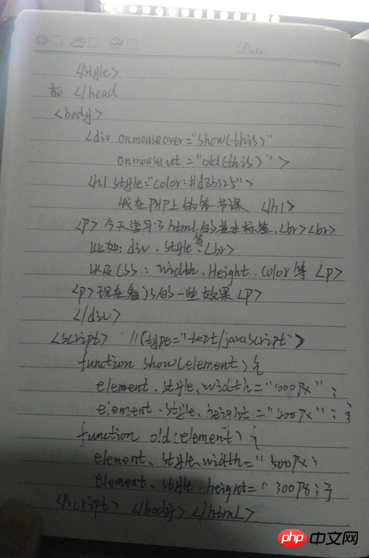 </style>
</head
<body>
<div onmouseover="show(this)"
onmouseout="old(this)">
<h1 style="color:#d8b325">
我在PHP上的第一节课 </h1>
<p> 今天学习了html的基本标签,<br><br>
比如: div. style等.<br>
以及Css: width.Height.Color等 <p>
<p>现在看到的一些效果<p>
</div>
<script> //(type="text/javascript")
function show(element){
element.style.width="1000px";
element.style.height="200px";}
function old(element){
element.style.width="500px;
element.style.height="300px;}
</script> </body></html>
php中文网